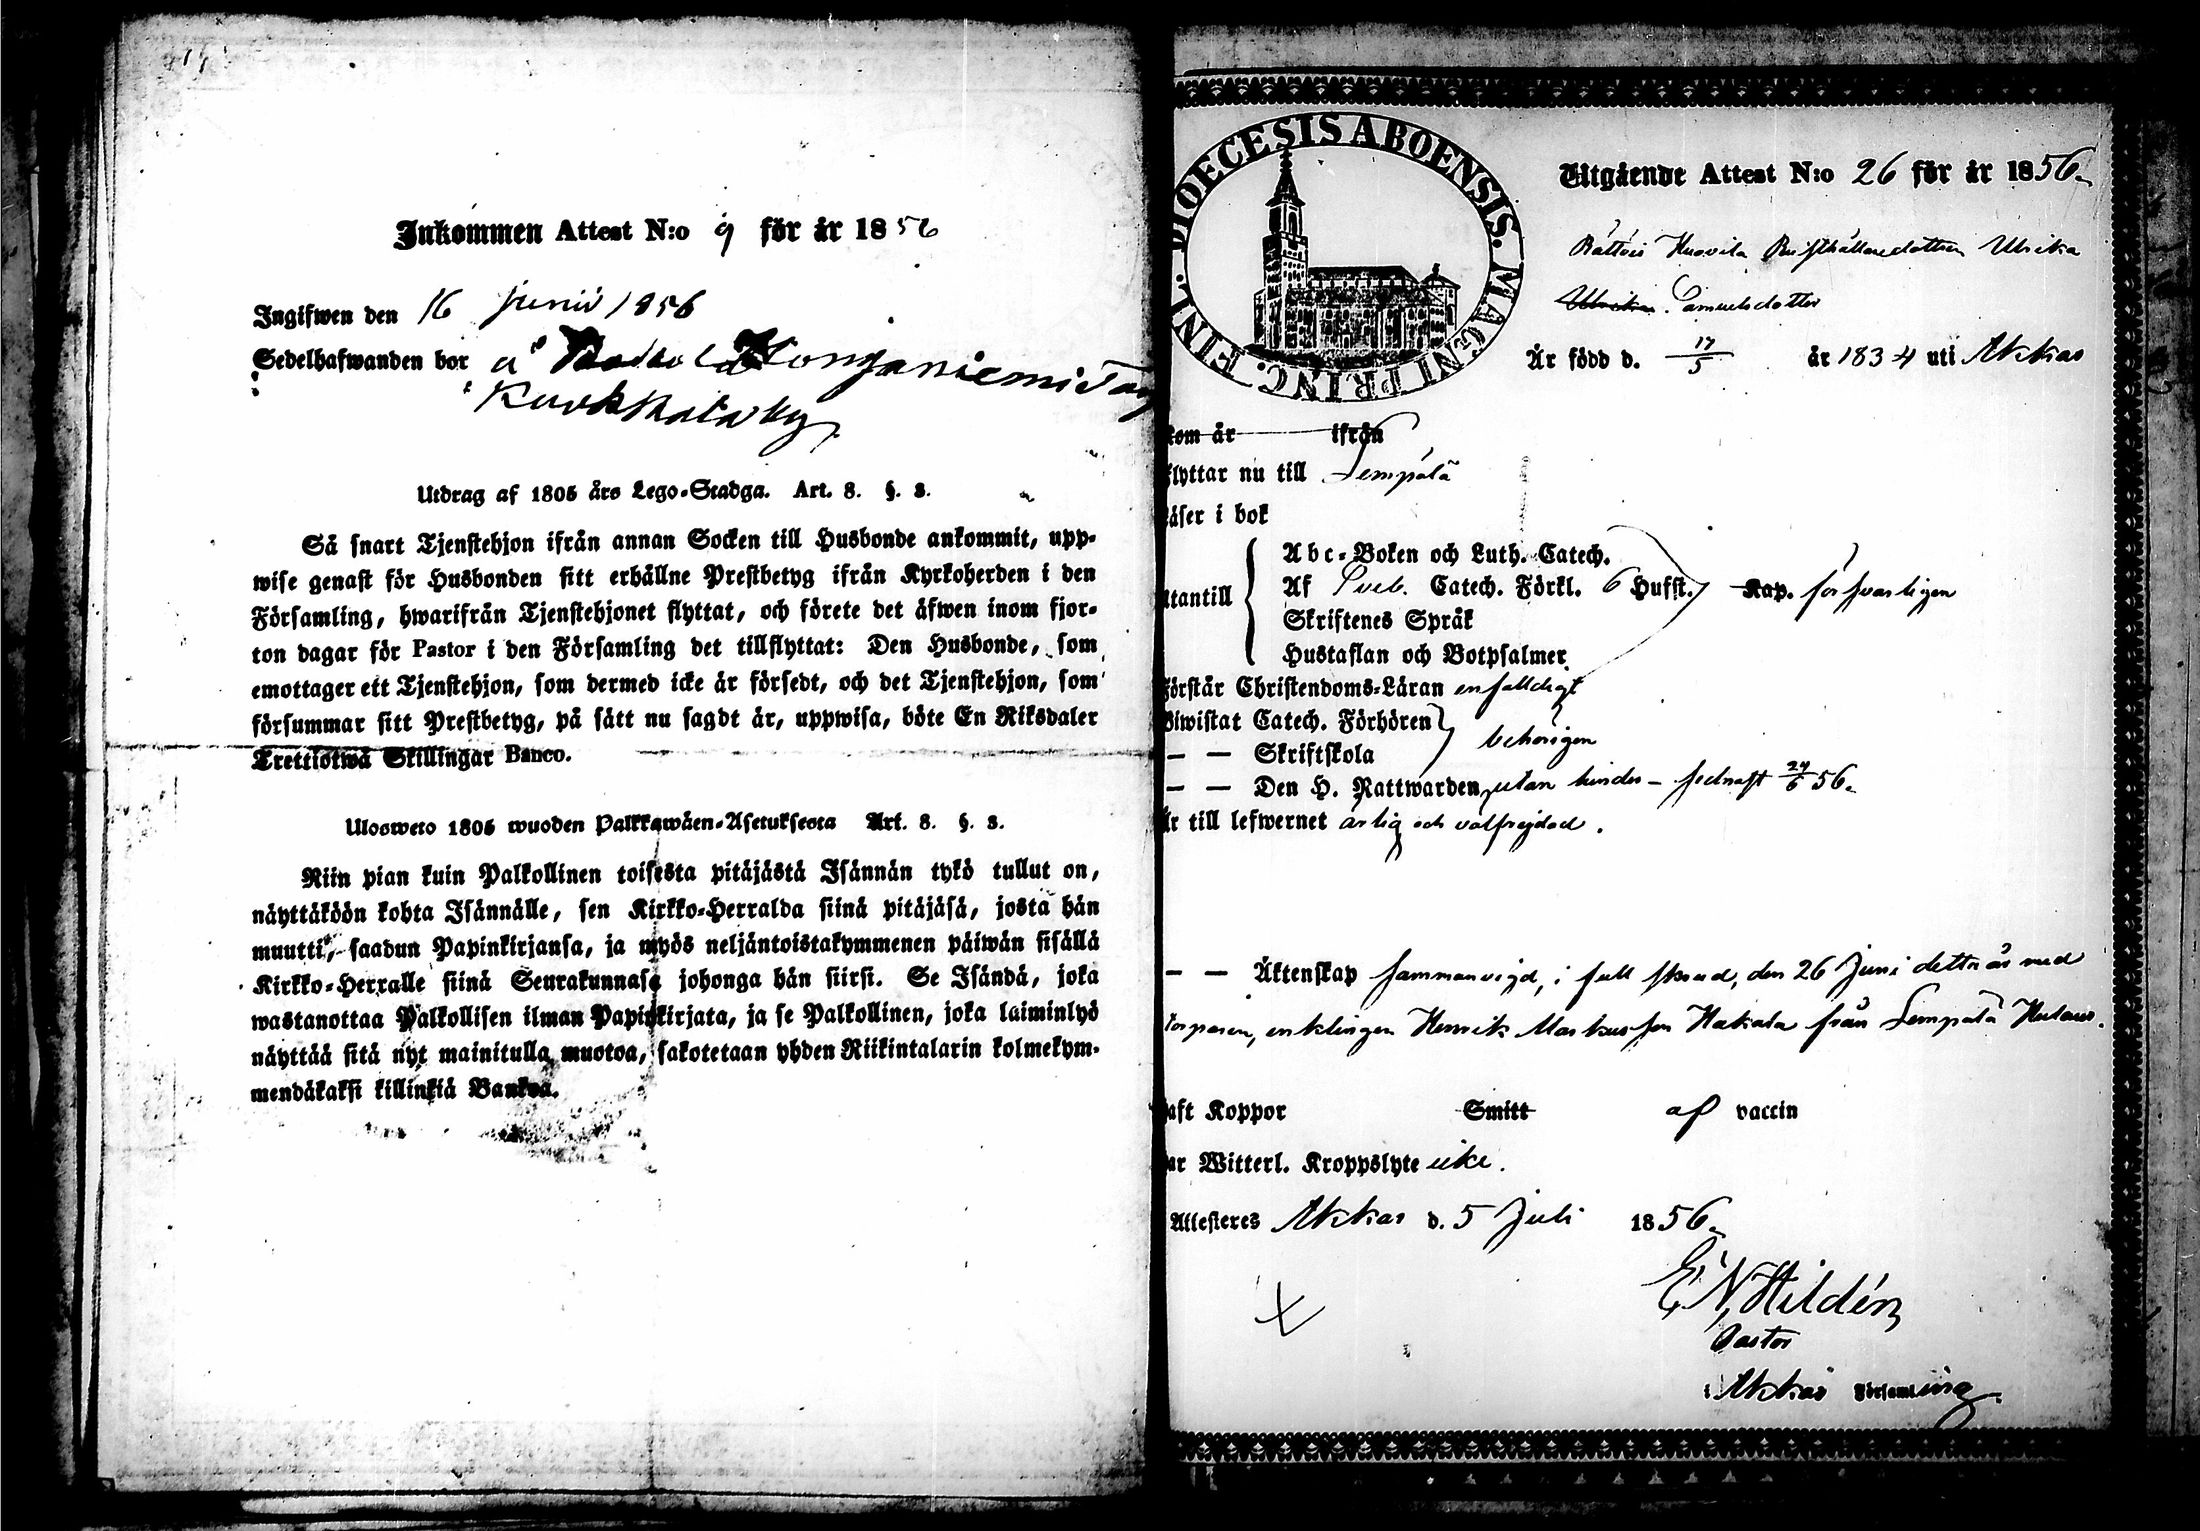 Inkommen Attest N:o 9 för år 1856
Ingifwen den 16 Junii 1856
Sedelhafwanden bor å Konganiemi
Kurkkala by
Utdrag af 1805 års Lego-Stadga. Art. 8. §. 3.
Så snart Tjenstehjon ifrån annan Socken till Husbonde ankommit, upp-
wise genast för Husbonden sitt erhållne Prestbetyg ifrån Kyrkoherden i den
Församling, hwarifrån Tjenstehjonet flyttat, och förete det äfwen inom fjor-
ton dagar för Pastor i den Församling det tillflyttat: Den Husbonde, som
emottager ett Tjenstehjon, som dermed icke är försedt, och det Tjenstehjon, som
försummar sitt Prestbetyg, på sätt nu sagdt är, uppwisa, böte En Riksdaler
Trettiotwå Skillingar Banco.
Ulosweto 1805 wuoden Palkkawäen-Asetuksesta Art. 8. §. 3.
Niin pian kuin Palkollinen toisesta pitäjästä Isännän tykö tullut on,
näyttäköön kohta Isännälle, sen Kirkko-Herralda siinä pitäjäsä, josta hän
muutti, saadun Papinkirjansa, ja myös neljäntoistakymmenen päiwän sisällä
Kirkko-Herralle siinä Seurakunnasa johonga hän siirsi. Se Isändä, joka
wastanottaa Palkollisen ilman Papinkirjata, ja se Palkollinen, joka laiminlyö
näyttää sitä nyt mainitulla muotoa, sakotetaan yhden Riikintalarin kolmekym-
mendäkaksi killinkiä Bankoa.
FINL. DIOECESIS ABOENSIS. MAGNI PRINC.
Utgående Attest N:o 26 för år 1856
Rusthållaredottren Ulrika
Ulrika Samuelsdotter
Är född d. 17/5 år 1834 uti Akkas
kom år ifrån
flyttar nu till Lempälä
läser i bok
utantill
Abc-Boken och Luth. Catech.
Af Sveb. Catech. Förkl. 6 Hufst. Kap. försvarligen
Skriftenes Språk
Hustaflan och Botpsalmer
Förstår Christendoms-Läran enfalldigt
Biwistat Catech. Förhören
— — Skriftskola behörigen
— — Den H. Nattwarden utan hinder – sednast 24/6 56.
Är till lefwernet ärlig och välfrejdad.
— — Äktenskap sammanvigd, i full skrud, den 26 Juni detta år med
torparen, enklingen Henrik Markusson Hakala från Lempälä
haft Koppor Smitt af vaccin
har Witterl. Kroppslyte icke.
Attesteres Akkas d. 5 Juli 1856
E N Hildén
Pastor
i Akkas Församling.